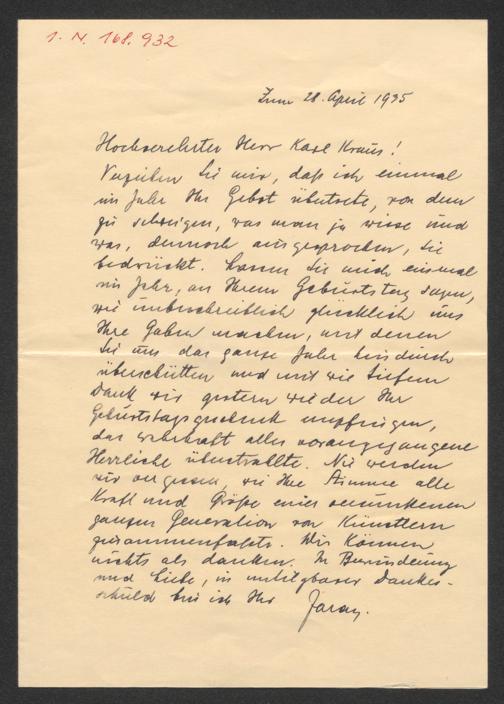 I. N. 168.932
Zum 28. April 1935
Hochverehrter Herr Karl Kraus!
Verzeihen Sie mir, daß ich einmal
im Jahr Ihr Gebot übertrete, von dem
zu schweigen, was man ja wisse und
was, dennoch ausgesprochen, Sie
bedrückt. Lassen Sie mich einmal
im Jahr, an Ihrem Geburtstag sagen,
wie unbeschreiblich glücklich uns
Ihre Gaben machen, mit denen
Sie uns das ganze Jahr hindurch
überschütten und mit wie tiefem
Dank wir gestern wieder Ihr
Geburtstagsgeschenk empfingen,
das wahrhaft alles vorangegangene
Herrliche überstrahlte. Nie werden
wir vergessen, wie Ihre Stimme alle
Kraft und Größe einer versunkenen
ganzen Generation von Künstlern
zusammenfaßte. Wir können
nichts als danken. In Bewunderung
und Liebe, in untilgbarer Dankes-
schuld bin ich Ihr Jaray.